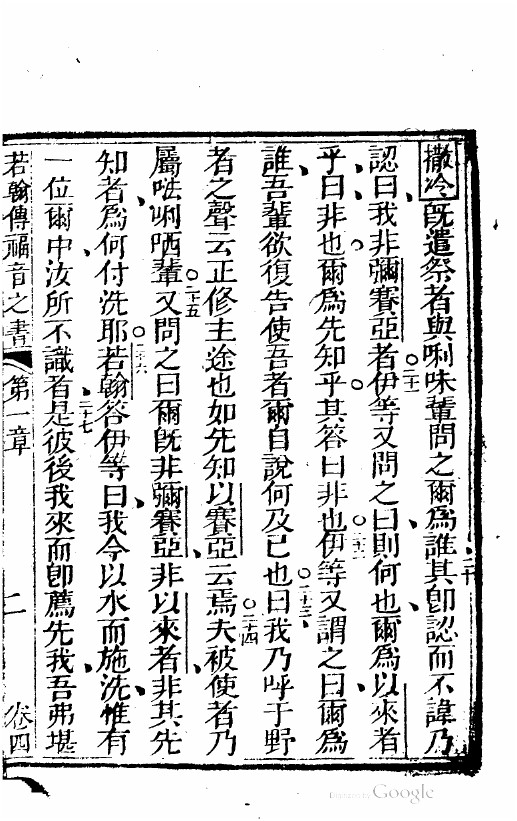 撒冷既遣祭者與唎味輩問之爾為誰其卽認而不諱乃
二十
認曰我非彌賽亞者伊等又問之曰則何也爾為以來者
二一
乎曰非也爾為先知乎其答曰非也伊等又謂之曰爾為
二二
誰吾輩欲復告使吾者爾自說何及己也曰我乃呼于野
二十三
者之聲云正修主途也如先知以賽亞云焉夫被使者乃
二十四
屬𠵽唎哂輩又問之曰爾旣非彌賽亞非以來者非其先
二十五
知者為何付洗耶若翰答伊等曰我今以水而施洗惟有
二十六
一位爾中汝所不識者是彼後我來而卽薦先我吾弗堪
二十七
若翰傳福音之書 第一章 二 卷四
Digitized by Google